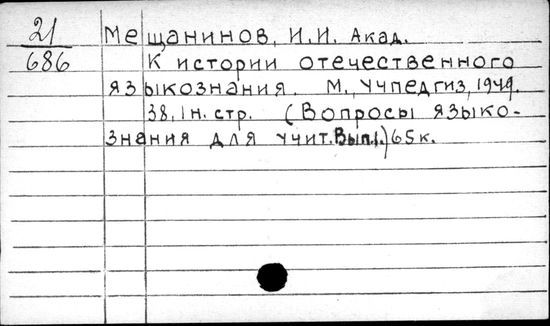 21 Мещанинов, И.И. Акад.
686 К истории отечественного
языкознания. М., Учпедгиз, 1949.
38, 1 н. стр. (Вопросы языко-
знания для учит. Вып.1.) 65к.